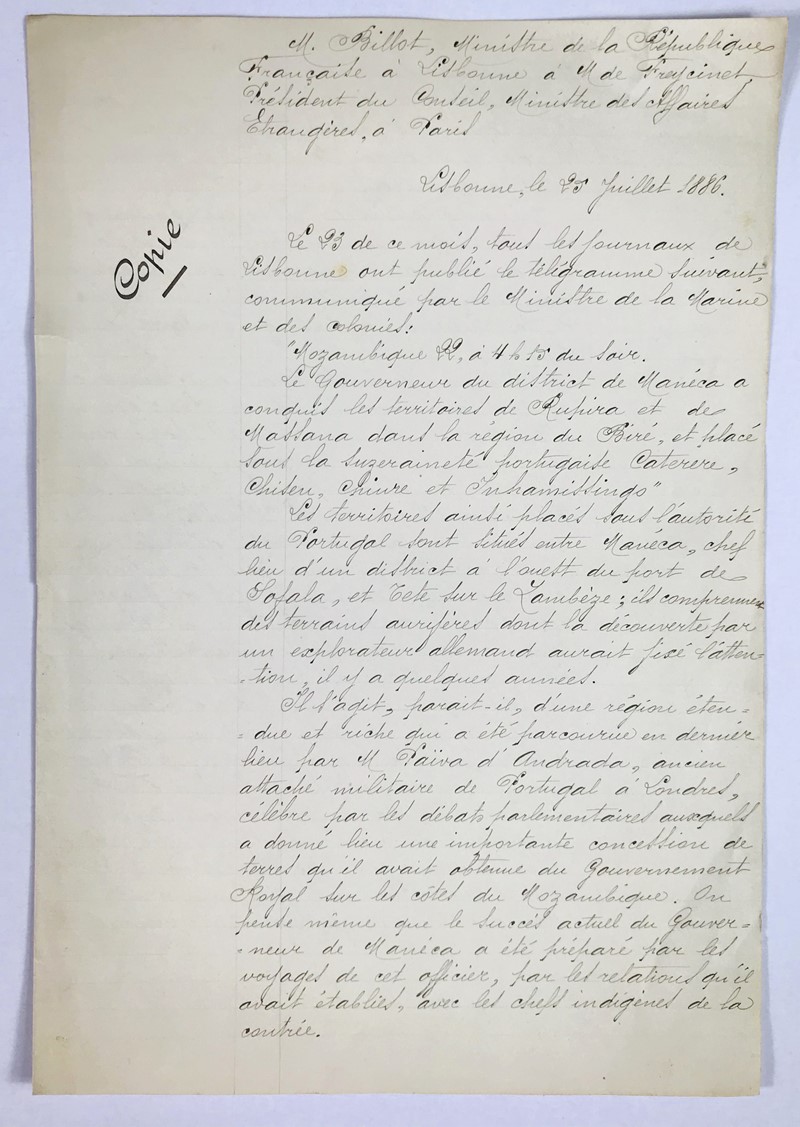 M. Billot, Ministre de la République
Française à Lisbonne à M de Freycinet,
Président du Conseil, Ministre des Affaires
Etrangères, à Paris
Lisbonne, le 25 Juillet 1886.
Copie
Le 23 de ce mois, tous les journaux de
Lisbonne ont publié le télégramme suivant,
communiqué par le Ministre de la Marine
et des Colonies:
"Mozambique 22, à 4 h 15 du soir.
Le Gouverneur du district de Manéca a
conquis les territoires de Rupira et de
Massana dans la région du Biré, et placé
sous la suzeraineté portugaise Caterere,
Chiseu, Chiure et Inhamissingo"
Les territoires ainsi placés sous l'autorité
du Portugal sont situés entre Maneca, chef
lieu d'un district à l'ouest du port de
Sofala, et Tete sur le Zambèze; ils comprennent
des terrains aurifères dont la découverte par
un explorateur allemand aurait fixé l'atten=
=tion, il y a quelques années.
Il s'agit, parait-il, d'une région éten=
=due et riche qui a été parcourue en dernier
lieu par M Païva d'Andrada, ancien
attaché militaire de Portugal à Londres,
célèbre par les débats parlementaires auxquels
a donné lieu une importante concession de
terres qu'il avait obtenue du Gouvernement
Royal sur les côtes du Mozambique. On
pense même que le succès actuel du Gouver=
=neur de Manéca a été préparé par les
voyages de cet officier, par les relations qu'il
avait établies, avec les chefs indigènes de la
contrée.